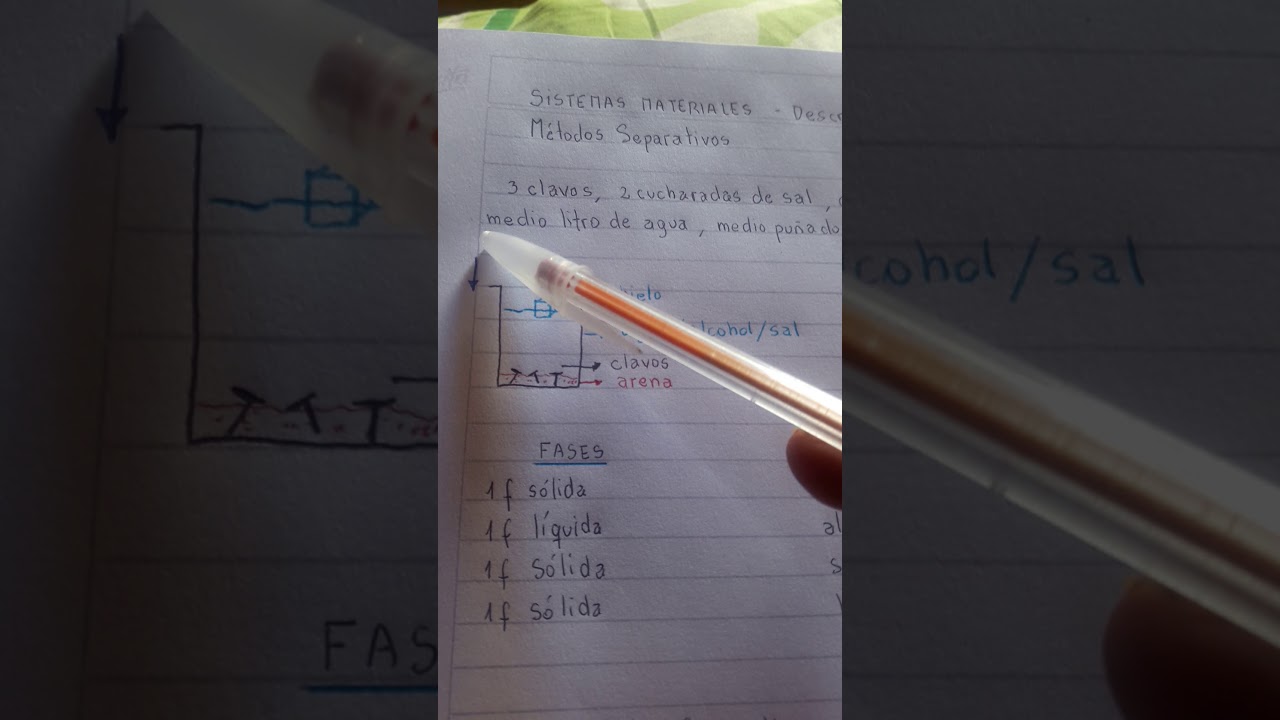 SISTEMAS MATERIALES - Descr
Métodos Separativos
3 clavos, 2 cucharadas de sal,
medio litro de agua, medio puñado
cohol/sal
clavos
arena
FASES
1f sólida
1f líquida
al
1f sólida
s
1f sólida
cohol/sal
FAS